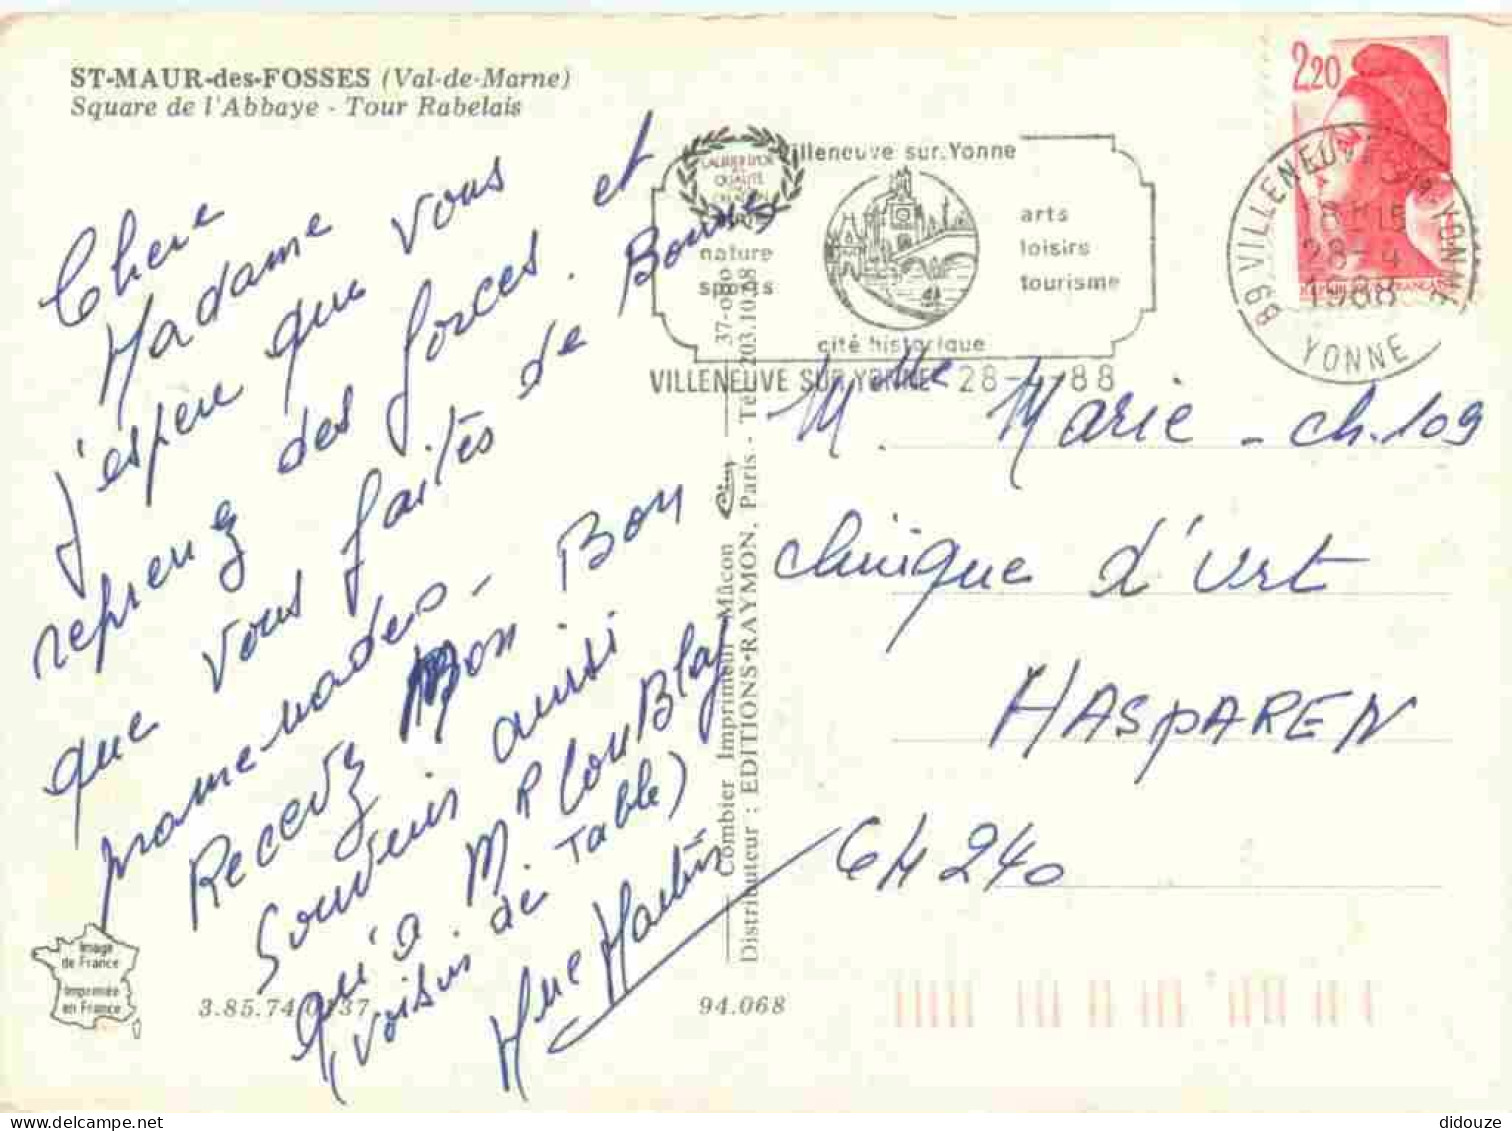 ST-MAUR-des-FOSSES (Val-de-Marne)
Square de l'Abbaye - Tour Rabelais
Chere
Madame
j'espère que vous
reprenez des forces. et
que vous faites de Bonnes
promenades - Bon
Recevez Mon Bon
Souvenir ainsi
qu'a M.R
(voisin de Table)
Mme Martin
Image
de France
Imprimée
en France
94.068
Combier Imprimeur Mâcon
Distributeur : EDITIONS-RAYMON, Paris - Tél. 203.10.78
Villeneuve sur Yonne
nature
sports
arts
loisirs
tourisme
cité historique
VILLENEUVE SUR YONNE 28-4-88
2,20
89 VILLENEUVE S/ YONNE
18 H 15
28-4
1988
YONNE
Melle Marie - ch. 109
clinique d'Urt
HASPAREN
64 240
didouze